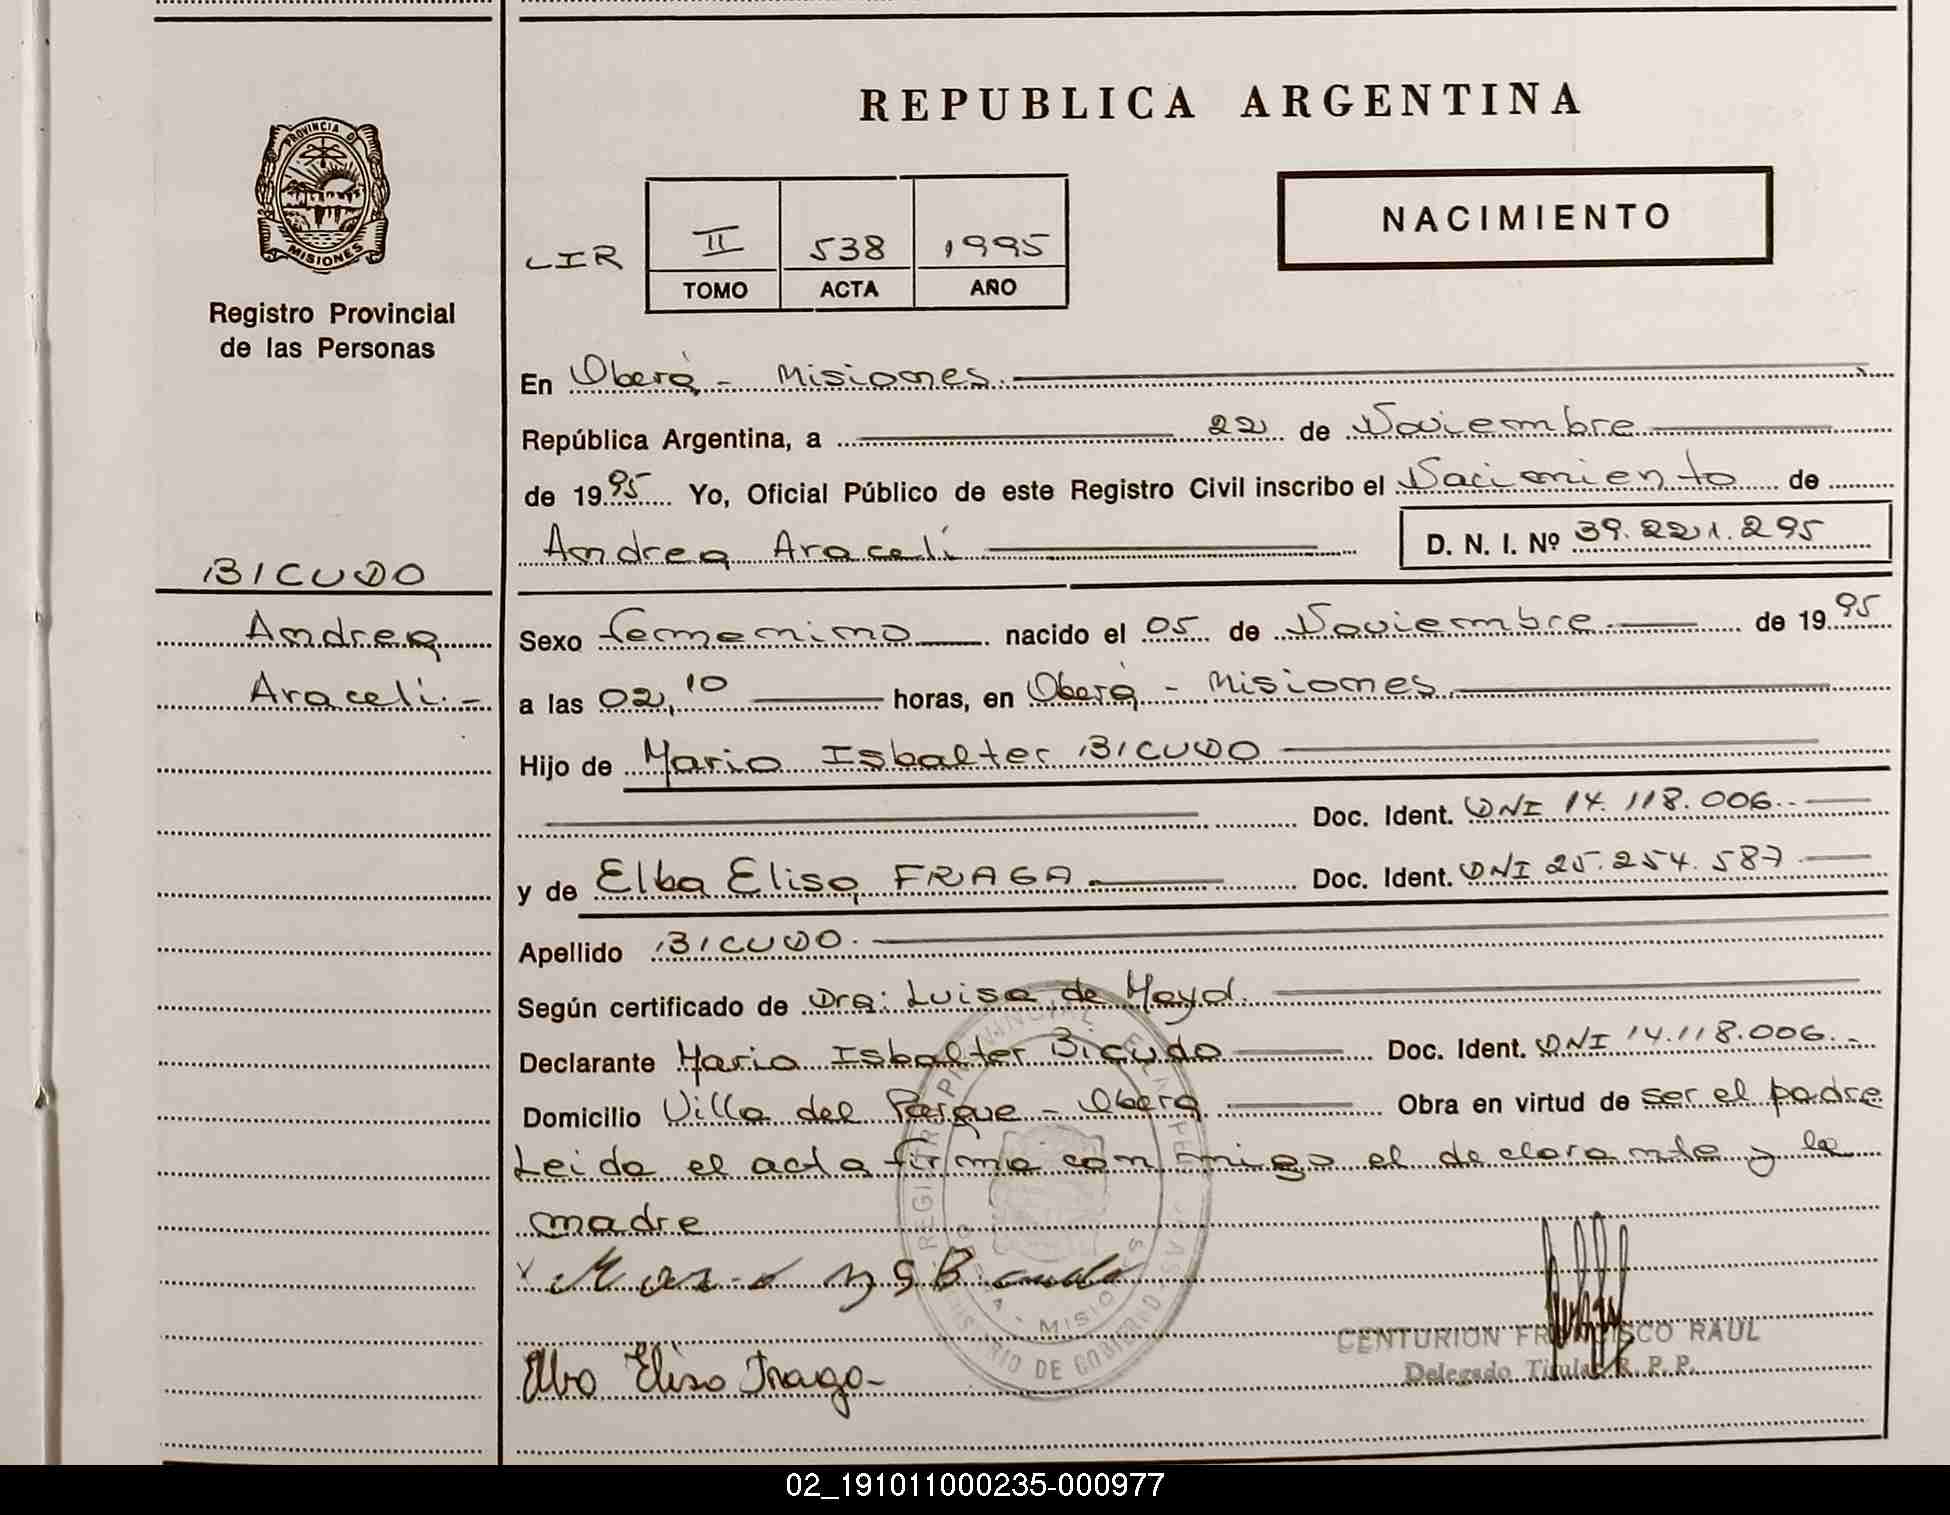 REPUBLICA ARGENTINA
PROVINCIA DE
MISIONES
Registro Provincial
de las Personas
NACIMIENTO
LIR II 538 1995
TOMO ACTA AÑO
En Oberá - Misiones.
República Argentina, a 22 de Noviembre
de 1995 Yo, Oficial Público de este Registro Civil inscribo el Nacimiento de
Andrea Aracelí D. N. I. Nº 39.221.295
BICUDO
Andrea
Araceli.-
Sexo femenino nacido el 05 de Noviembre de 1995
a las 02,10 horas, en Oberá - Misiones
Hijo de Mario Isbalter BICUDO
Doc. Ident. DNI 14.118.006.
y de Elba Elisa FRAGA Doc. Ident. DNI 25.254.587
Apellido BICUDO.
Según certificado de Dra: Luisa de Mayol.
Declarante Mario Isbalter Bicudo Doc. Ident. DNI 14.118.006.-
Domicilio Villa del Parque - Oberá Obra en virtud de ser el padre
Leida el acta firma conmigo el declarante y la
madre
CENTURION FRANCISCO RAUL
Delegado Titular R. P. P.
Elba Elisa Fraga-
02_191011000235-000977